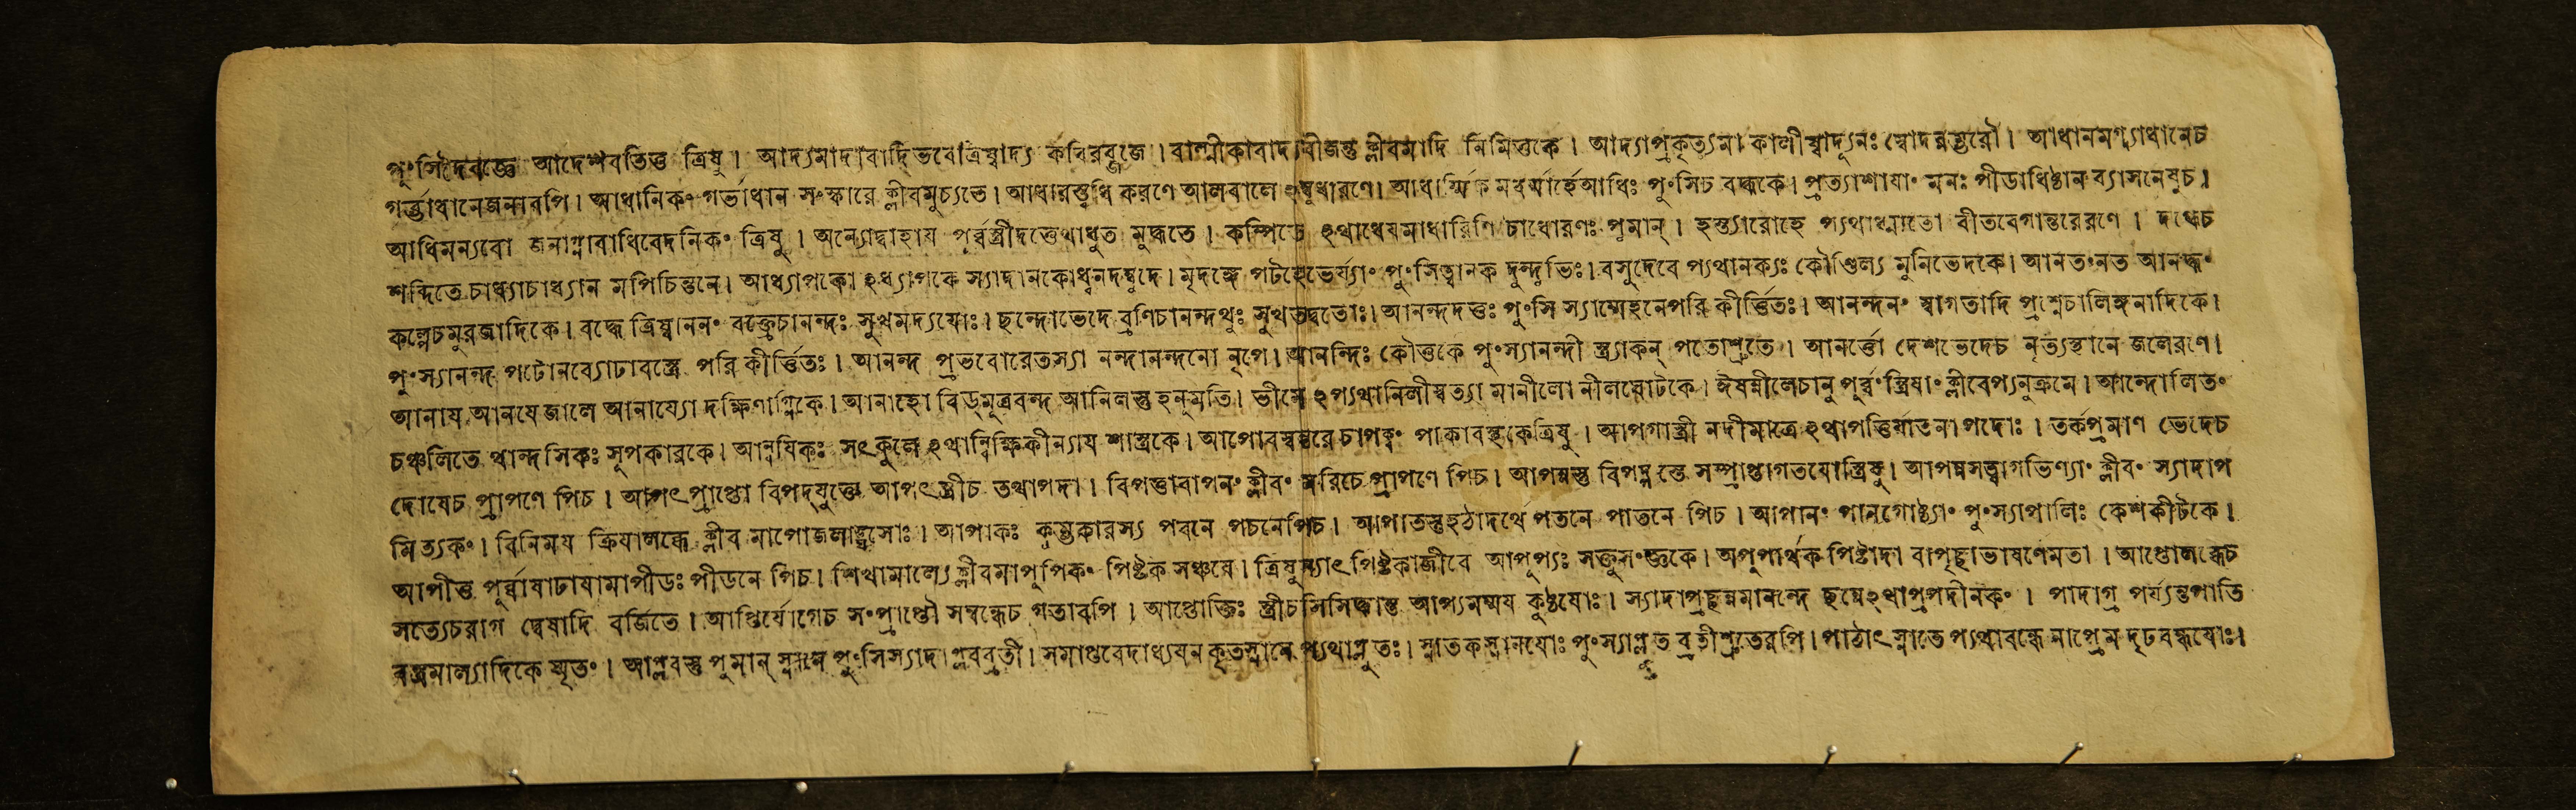 পুংসিদৈবজ্ঞে আদেশবতিত্ত ত্রিষু। আদ্যমাদাবাদিভবেত্রিষ্বাদ্য কবিরব্জজে। বাল্মীকাবাদ্যবীজন্তু ক্লীবমাদি নিমিত্তকে। আদ্যাপ্রকৃত্যমা কালীষ্বাদ্যূনঃ স্বোদরম্ভরৌ। আধানমগ্ন্যাধানেচ
গর্ত্তাধানেজনাবপি। আধানিকং গর্ভাধান সংস্কারে ক্লীবমুচ্যতে। আধারস্ত্বধি করণে আলবালে ২ম্বুধারণে। আধর্ম্মিক মধর্ম্মার্হেআধিঃ পুংসিচ বন্ধকে। প্রত্যাশাযাং মনঃ পীডাধিষ্ঠান ব্যাসনেষুচ।
আধিমন্যবো জনাগ্নাবাধিবেদনিকং ত্রিষু। অন্যোদ্বাহায পূর্ব্বস্ত্রীদত্তেথাধুত মুদ্ধতে। কম্পিতে ২থাধেযমাধারিণি চাধোরণঃ পুমান্। হস্ত্যারোহে প্যথাধ্মাতো বীতবেগান্তরেরণে। দগ্ধেচ
শব্দিতেচাধ্যাচাধ্যান মপিচিন্তনে। আধ্যাপকো ২ধ্যাপকে স্যাদানকোধ্বনদম্বুদে। মৃদঙ্গে পটহেভের্য্যাং পুংসিত্বানক দুন্দুভিঃ। বসুদেবে প্যথানক্যঃ কৌণ্ডিল্য মুনিভেদকে। আনতংনত আনদ্ধং
কল্পেচমুরজাদিকে। বদ্ধে ত্রিষ্বাননং বক্ত্রেচানন্দঃ সুখমদ্যযোঃ। ছন্দোভেদে বৃণিচানন্দথুঃ সুখতদ্বতোঃ। আনন্দদত্তঃ পুংসি স্যান্মেহনেপরি কীর্ত্তিতঃ। আনন্দনং স্বাগতাদি প্রশ্নেচালিঙ্গনাদিকে।
পুংস্যানন্দ পটোনবোঢাবস্ত্রে পরি কীর্ত্তিতঃ। আনন্দ প্রভবোরেতস্যা নন্দানন্দনো নৃপে। আনন্দিঃ কৌতুকে পুংস্যানন্দী স্ত্র্যাকন্ পতোশ্রুতে। আনর্ত্তো দেশভেদেচ নৃত্যস্থানে জলেরণে।
আনায আনযেজালে আনায্যো দক্ষিণাগ্নিকে। আনাহো বিড্মূত্রবন্দ আনিলস্তু হনুমতি। ভীমে ২প্যথানিলীস্বত্যা মানীলো নীলঘোটকে। ঈষন্নীলেচানু পূর্ব্বং স্ত্রিযাং ক্লীবেপ্যনুক্রমে। আন্দোলিতং
চঞ্চলিতে থান্দসিকঃ সূপকারকে। আন্বযিকঃ সৎকুলে ২থান্বিক্ষিকীন্যায শাস্ত্রকে। আপোবস্বন্তরে চাপক্বং পাকাবস্থকেত্রিষু। আপগাস্ত্রী নদীমাত্রে ২থাপত্তির্যাতনাপদোঃ। তর্কপ্রমাণ ভেদেচ
দোষেচ প্রাপণে পিচ। আপৎপ্রাপ্তো বিপদ্যুক্তে আপৎস্ত্রীচ তথাপদা। বিপত্তাবাপনং ক্লীবং মরিচে প্রাপণে পিচ। আপন্নস্তু বিপদ্গ্রস্তে সম্প্রাপ্তাগতযোস্ত্রিষু। আপন্নসত্ত্বাগভিণ্যাং ক্লীবং স্যাদাপ
মিত্যকং। বিনিময ক্রিযালব্ধে ক্লীব মাপোজলাঙ্ঘসোঃ। আপাকঃ কুম্ভকারস্য পবনে পচনেপিচ। আপাতস্তুহঠাদর্থে পতনে পাতনে পিচ। আপানং পানগোষ্ঠ্যাং পুংস্যাপালিঃ কেশকীটকে।
আপীত্ত পূর্ব্বাষাঢাষামাপীডঃ পীডনে পিচ। শিখামাল্যে ক্লীবমাপূপিকং পিষ্টক সঞ্চয়ে। ত্রিষুস্যাৎ পিষ্টকাজীবে আপূপ্যঃ সক্তুসংজ্ঞকে। অপূপার্থক পিষ্টাদা বাপৃচ্ছাভাষণেমতা। আপ্তোলব্ধেচ
সত্যেচরাগ দ্বেষাদি বর্জিতে। আপ্তির্যোগেচ সংপ্রাপ্তৌ সম্বন্ধেচ গতাবপি। আপ্তোক্তিঃ স্ত্রীচসিসিদ্ধান্ত আপ্যমম্ময কুষ্ঠযোঃ। স্যাদাপ্রচ্ছন্নমানন্দে ছন্নে২থাপ্রপদীনকং। পাদাগ্র পর্য্যন্তপাতি
বস্ত্রমাল্যাদিকে স্মৃতং। আপ্লবস্তু পুমান্ স্নানে পুংসিস্যাদাপ্লবব্রতী। সমাপ্তবেদাধ্যযন কৃতস্নানে প্যথাপ্লুতঃ। স্নাতকস্নানযোঃ পুংস্যাপ্লুত ব্রতীশ্রুতেরপি। পাঠাৎস্নাতে প্যথাবন্ধে নাপ্রেম দৃঢবন্ধযোঃ।